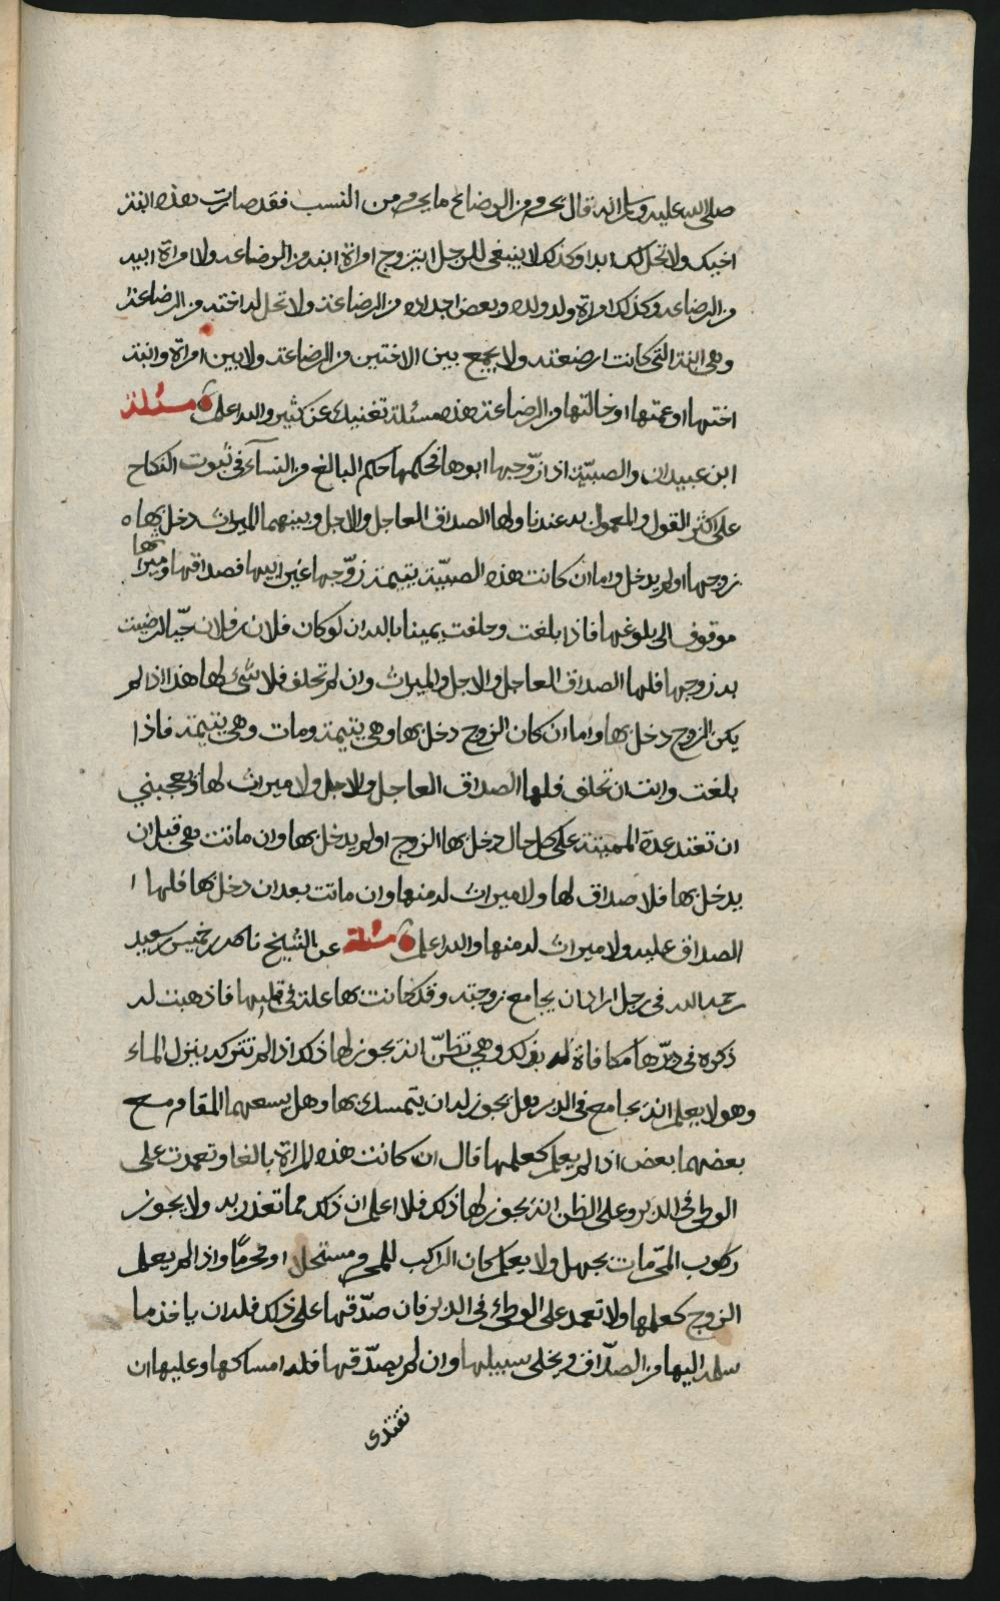 صلى الله عليه وسلم انه قال يحرم من الرضاع ما يحرم من النسب فقد صارت هذه ابنة
اخيك ولا تحل لك ابدا وكذلك لا ينبغي للرجل ان يتزوج امراة ابنه من الرضاعه ولا امراة ابيه
من الرضاعه وكذلك امراة ولد ولده وبعض اجداده من الرضاعة ولا تحل له اخته من الرضاعة
وهي ابنة التي كانت ارضعته ولا يجمع بين الاختين من الرضاعة ولا بين امراة وابنة
اختها او عمتها او خالتها من الرضاعة هذه مسئلة تغنيك عن كثير والله اعلم مسئلة
ابن عبيدان والصبيّة اذا زوّجها ابوها فحكمها حكم البالغ من النسآء في ثبوت النكاح
على اكثر القول والمعمول به عندنا ولها الصداق العاجل والاجل وبينهما الميراث دخل بها ه
زوجها او لم يدخل واما ان كانت هذه الصبيّة يتيمة زوّجها غير ابيها فصداقها وميراثها
موقوف الى بلوغها فاذا بلغت وحلفت يمينا بالله ان لو كان فلان بن فلان حيّا لرضيت
به زوجها فلها الصداق العاجل والاجل والميراث وان لم تحلف فلا شئ لها هذا اذا لم
يكن الزوج دخل بها واما ان كان الزوج دخل بها وهي يتيمة ومات وهي يتيمة فاذا
بلغت وابت ان تحلف فلها الصداق العاجل والاجل ولا ميراث لها ويعجبني
ان تعتد عدة المميتة على كل حال دخل بها الزوج او لم يدخل بها وان ماتت هي قبل ان
يدخل بها فلا صداق لها ولا ميراث له منها وان ماتت بعد ان دخل بها فلها ا
الصداق عليه ولا ميراث له منها والله اعلم مسئلة عن الشيخ ناصر بن خميس بن سعيد
رحمه الله في رجل اراد ان يجامع زوجته وقد كانت بها علة في قبلها فاذهبت له
ذكره في دبرّها مكافاة له بذلك وهي تظنّ انه يجوز لها ذلك اذا لم تتركه ينزل الماء
وهو لا يعلم انه يجامع في الدبر هل يجوز له ان يتمسك بها وهل يسعهما المقام مع
بعضهما بعض اذا لم يعلم كعلمها قال ان كانت هذه المراة بالغا وتعمدت على
الوطي في الدبر وعلى الظن انه يجوز لها ذلك فلا اعلم ان ذلك مما تعذر به ولا يجوز
ركوب المحّرمات بجهل ولا بعلم كان الراكب للمحرم مستحلا او محرّما واذا لم يعلم
الزوج كعلمها ولا تعمد على الوطئ في الدبر فان صدّقها على ذلك فله ان ياخذ ما
سلمه اليها من الصدّاق ويخلى سبيلها وان لم يصدّقها فله امساكها وعليها ان
تفتدي